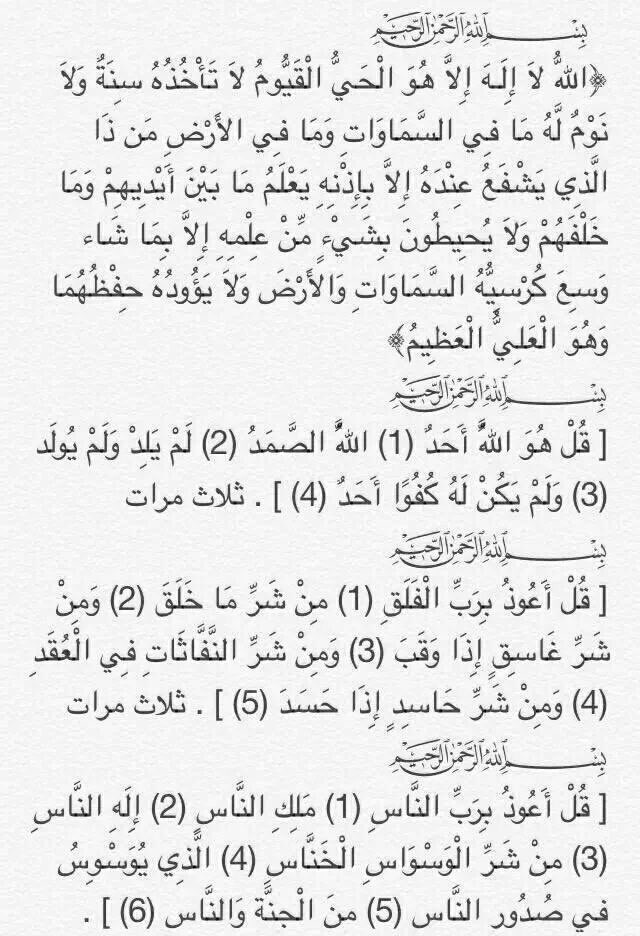 بِسْمِ اللهِ الرَّحْمٰنِ الرَّحِيْمِ
﴿اللهُ لاَ إِلَـهَ إِلاَّ هُوَ الْحَيُّ الْقَيُّومُ لاَ تَأْخُذُهُ سِنَةٌ وَلاَ
نَوْمٌ لَّهُ مَا فِي السَّمَاوَاتِ وَمَا فِي الأَرْضِ مَن ذَا
الَّذِي يَشْفَعُ عِنْدَهُ إِلاَّ بِإِذْنِهِ يَعْلَمُ مَا بَيْنَ أَيْدِيهِمْ وَمَا
خَلْفَهُمْ وَلاَ يُحِيطُونَ بِشَيْءٍ مِّنْ عِلْمِهِ إِلاَّ بِمَا شَاء
وَسِعَ كُرْسِيُّهُ السَّمَاوَاتِ وَالأَرْضَ وَلاَ يَؤُودُهُ حِفْظُهُمَا
وَهُوَ الْعَلِيُّ الْعَظِيمُ﴾
بِسْمِ اللهِ الرَّحْمٰنِ الرَّحِيْمِ
[ قُلْ هُوَ اللهُ أَحَدٌ (1) اللهُ الصَّمَدُ (2) لَمْ يَلِدْ وَلَمْ يُولَد
(3) وَلَمْ يَكُنْ لَهُ كُفُوًا أَحَدٌ (4) ] . ثلاث مرات
بِسْمِ اللهِ الرَّحْمٰنِ الرَّحِيْمِ
[ قُلْ أَعُوذُ بِرَبِّ الْفَلَقِ (1) مِنْ شَرِّ مَا خَلَقَ (2) وَمِنْ
شَرِّ غَاسِقٍ إِذَا وَقَبَ (3) وَمِنْ شَرِّ النَّفَّاثَاتِ فِي الْعُقَدِ
(4) وَمِنْ شَرِّ حَاسِدٍ إِذَا حَسَدَ (5) ] . ثلاث مرات
بِسْمِ اللهِ الرَّحْمٰنِ الرَّحِيْمِ
[ قُلْ أَعُوذُ بِرَبِّ النَّاسِ (1) مَلِكِ النَّاسِ (2) إِلَهِ النَّاسِ
(3) مِنْ شَرِّ الْوَسْوَاسِ الْخَنَّاسِ (4) الَّذِي يُوَسْوِسُ
فِي صُدُورِ النَّاسِ (5) مِنَ الْجِنَّةِ وَالنَّاسِ (6) ] .